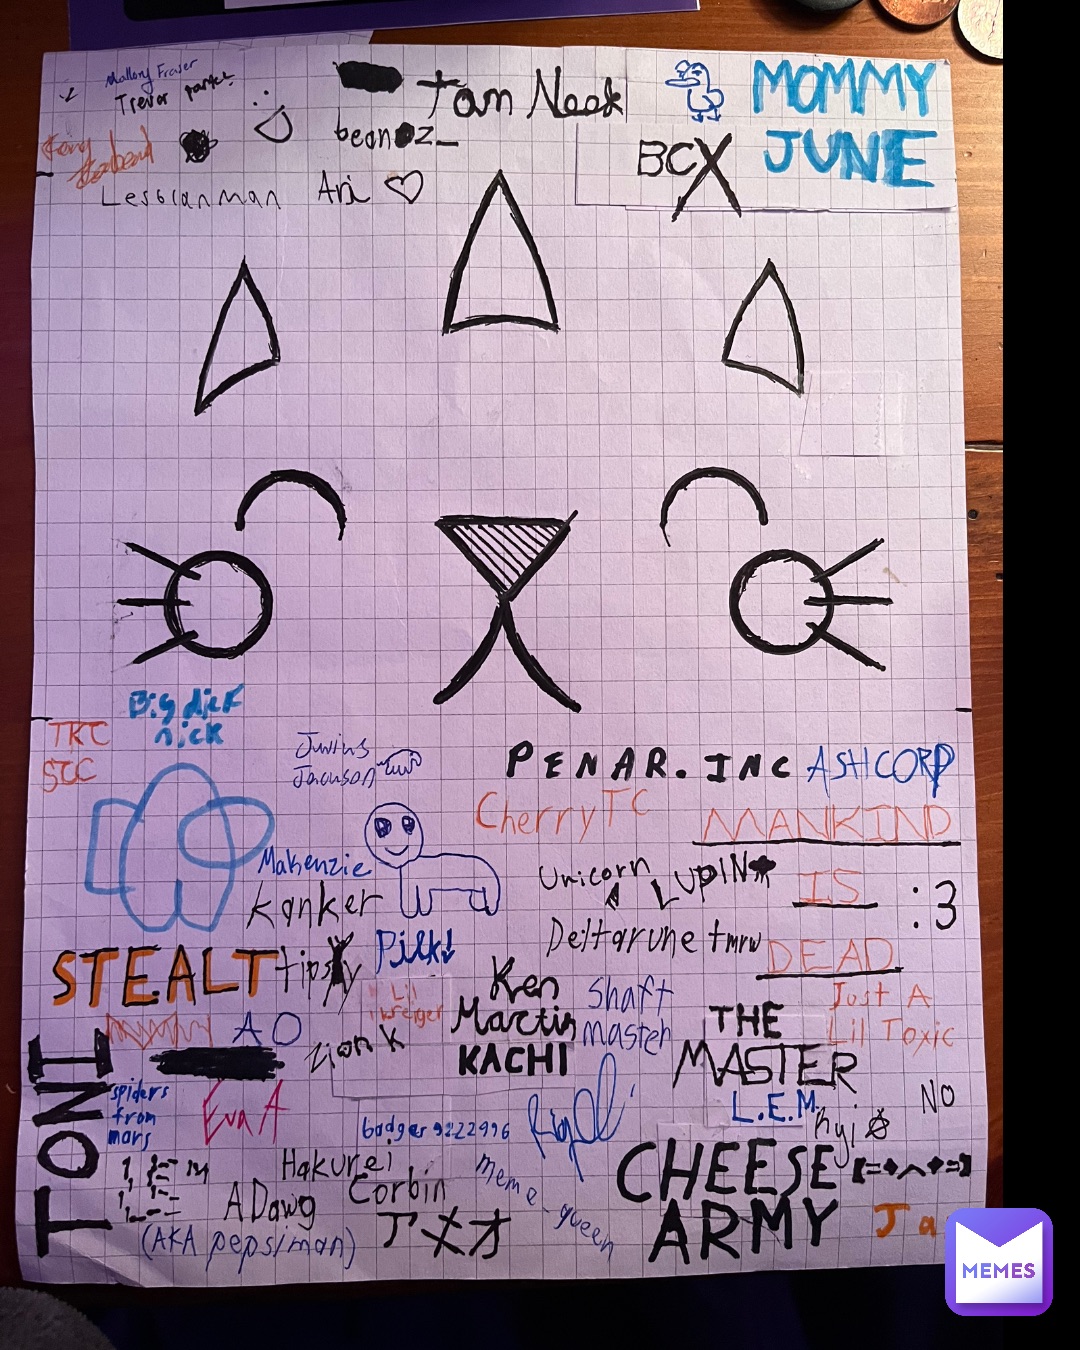 Mallory Fraser
Trevor parker
Tom Nook
beanoz_
MOMMY
JUNE
BCX
Lesbianman
Ari ♡
Big dick
nick
TKC
SCC
Junius
Jackson
PENAR.INC
ASHCORP
CherryTC
MANKIND
IS
DEAD
:3
Makenzie
Kanker
Unicorn
LUPIN
Deltarune tmrw
STEALT
tipsy
Pilk!
Lil
Ken
Martin
KACHI
Shaft
master
THE
MASTER
Just A
Lil Toxic
AO
Zion K
TONI
spiders
from
mars
Eva A
badger9222996
L.E.M.
nyi
NO
Hakurei
Corbin
ADawg
(AKA pepsiman)
アメオ
meme_queen
CHEESE
ARMY
Ja
MEMES